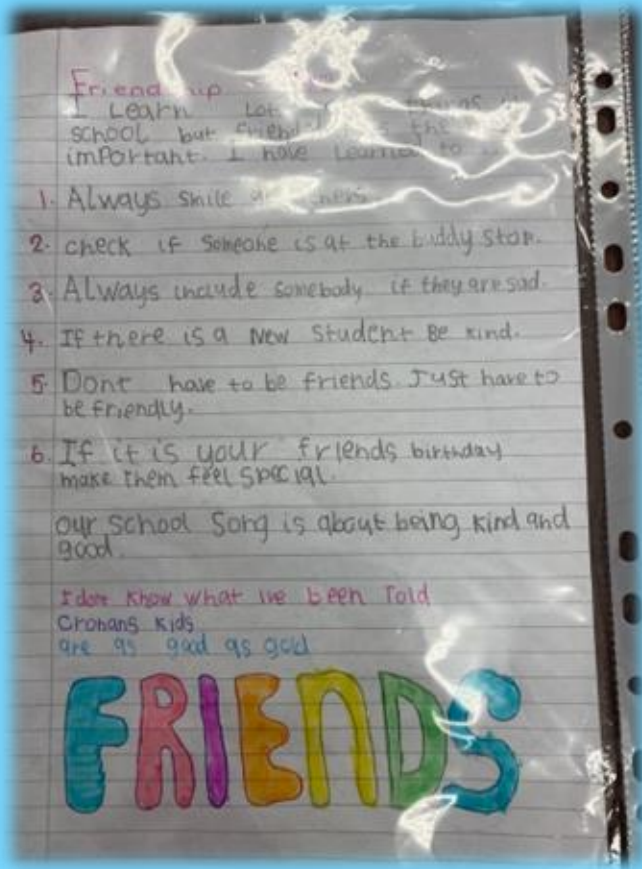 Friendship
I Learn Lot
school but friend the
important. I have Learned to
1. Always Smile
2. check if Someone is at the buddy stop.
3. Always include somebody if they are sad.
4. If there is a New Student Be kind.
5. Dont have to be friends. Just have to
be friendly.
6. If it is your friends birthday
make them feel special.
our School Song is about being kind and
good.
I dont know what ive been Told
Cronans Kids
are as good as gold
FRIENDS